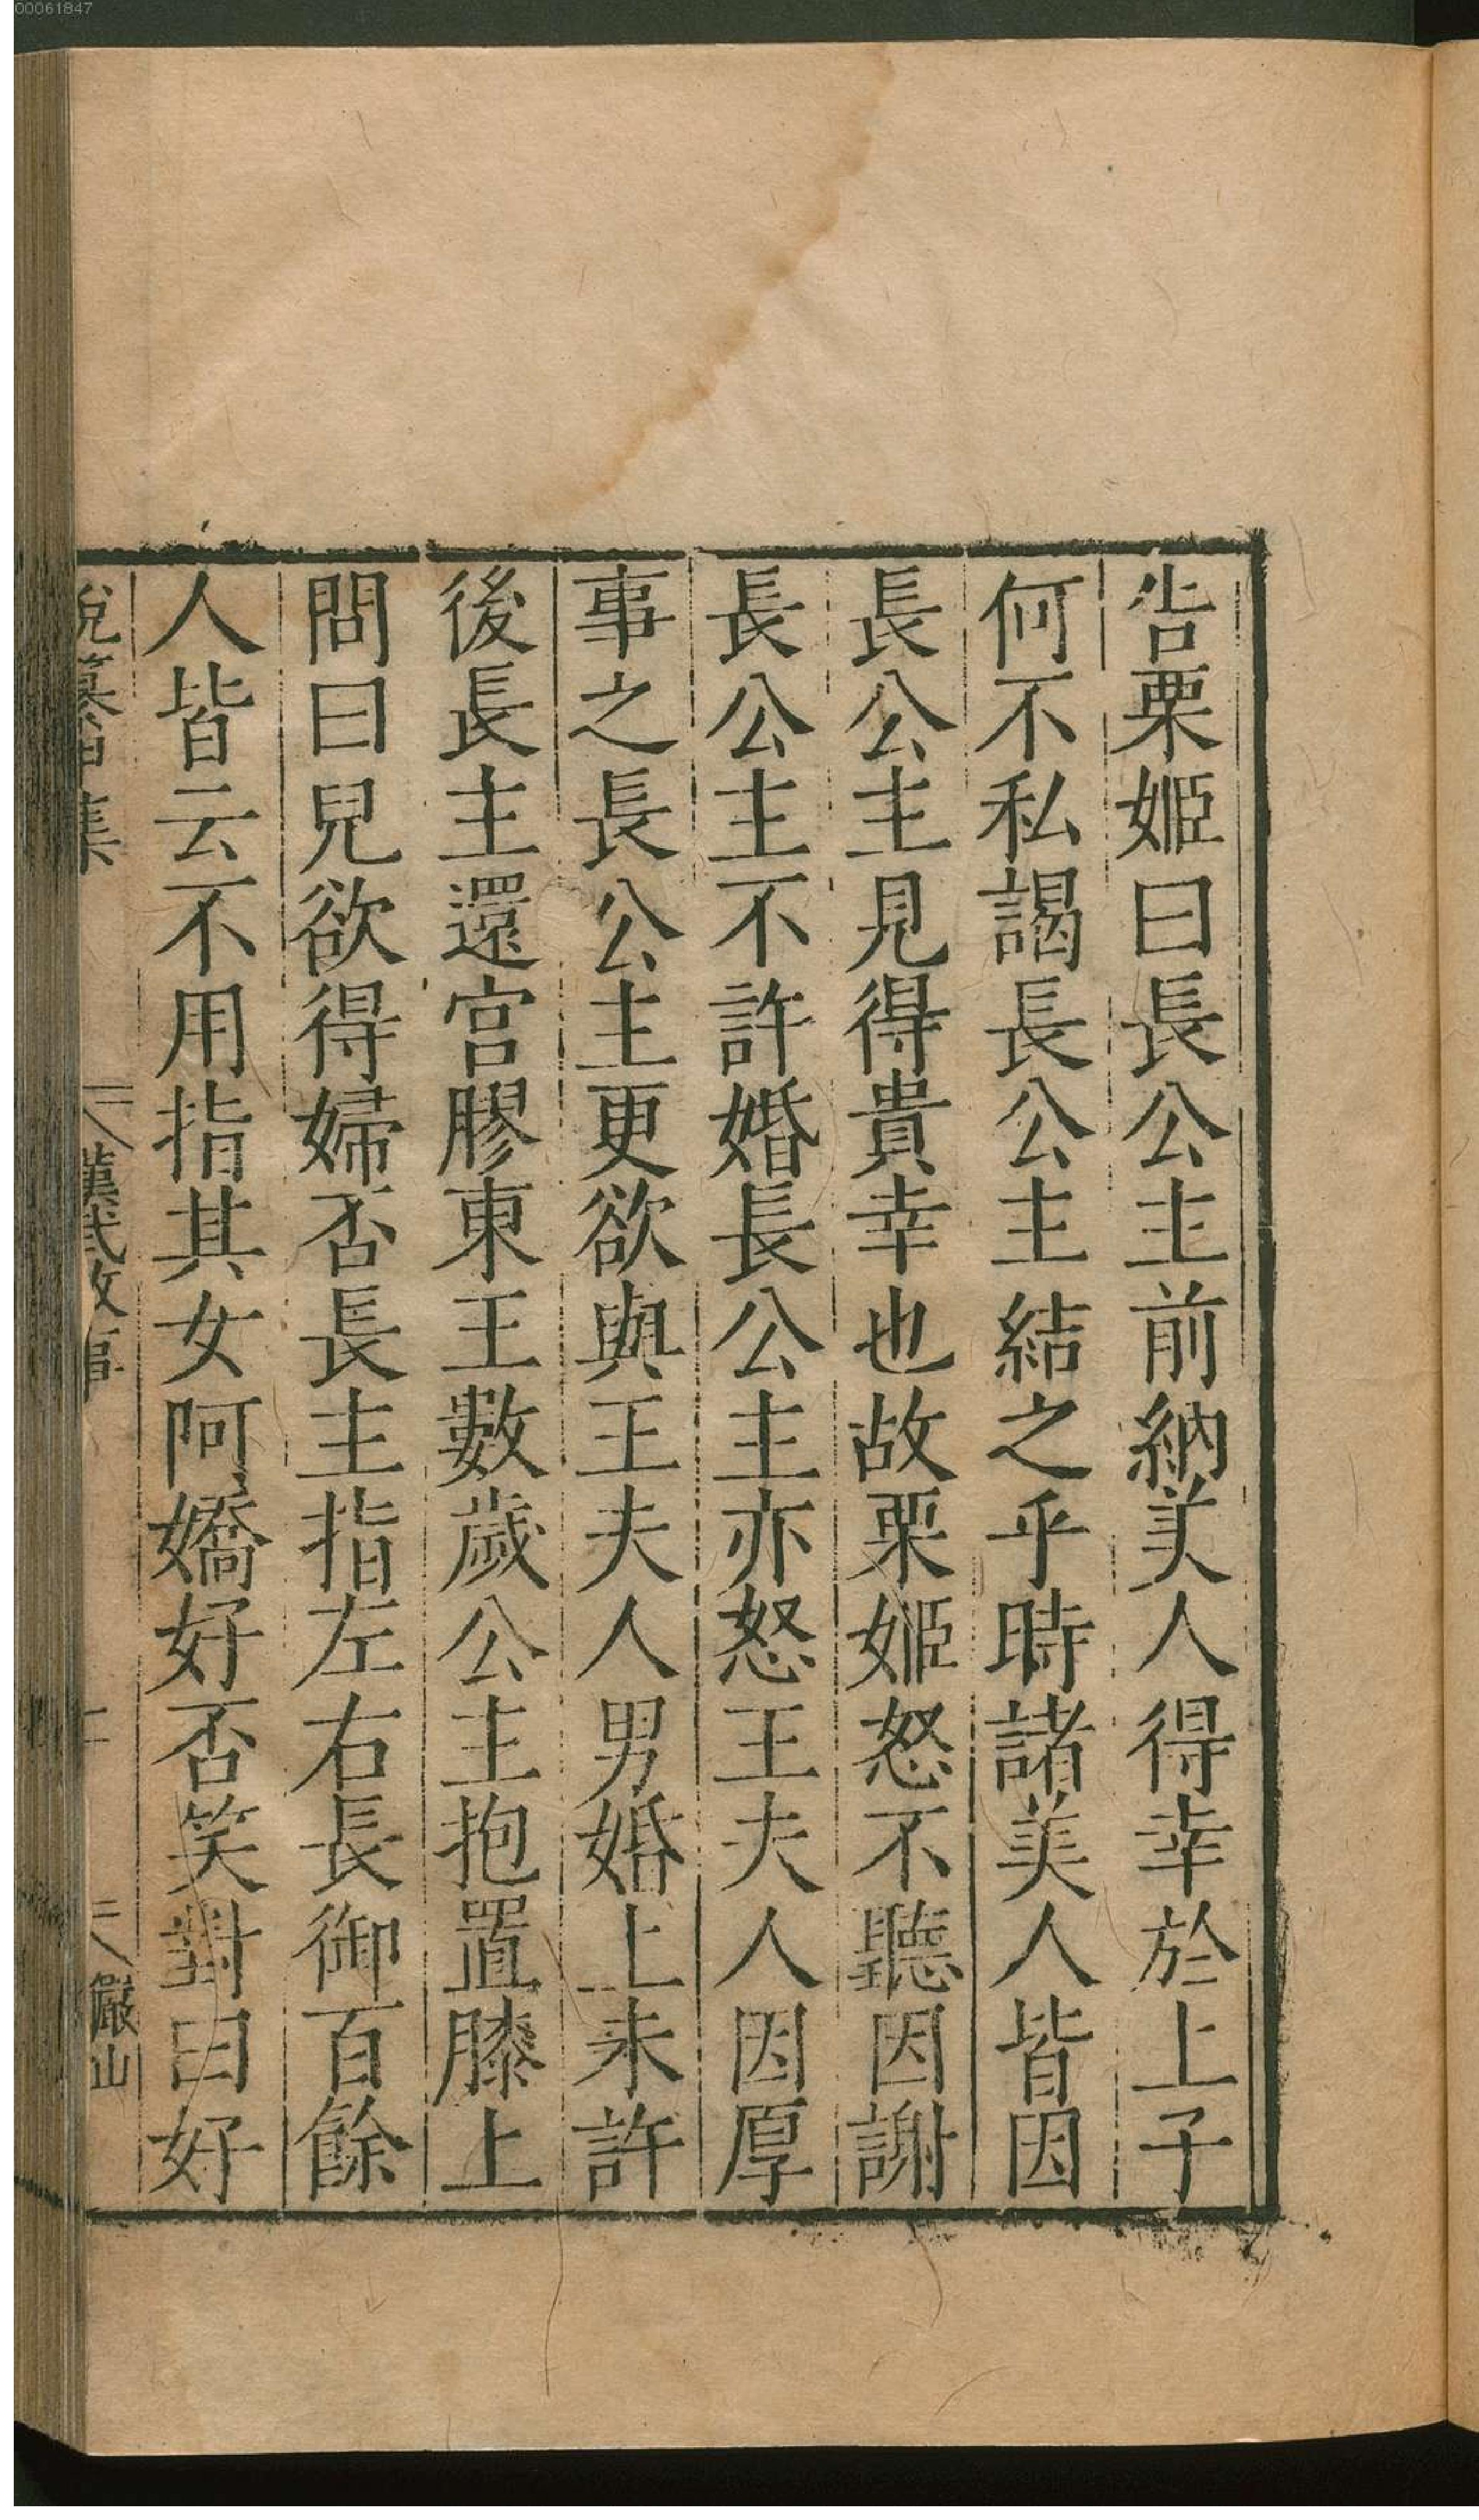 00061847
告栗姬曰長公主前納美人得幸於上子
何不私謁長公主結之乎時諸美人皆因
長公主見得貴幸也故栗姬怒不聽因謝
長公主不許婚長公主亦怒王夫人因厚
事之長公主更欲與王夫人男婚上未許
後長主還宮膠東王數歲公主抱置膝上
問曰兒欲得婦否長主指左右長御百餘
人皆云不用指其女阿嬌好否笑對曰好
說纂甲集
漢武故事
二
儼山